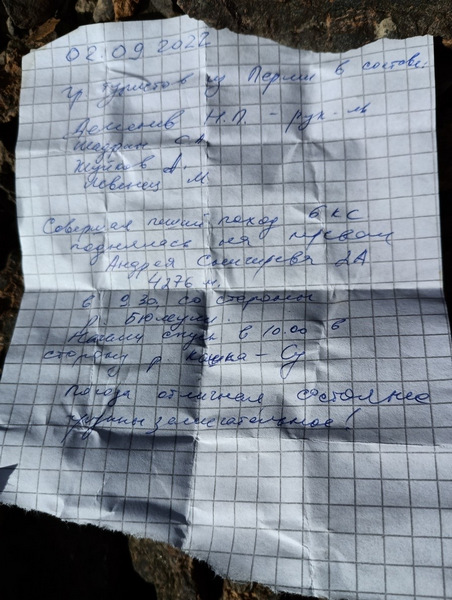 02.09.2022
гр туристов г Перми в составе:
Н.П. - рук-ль
Шадрин С.А.
Жуйков А.
Левенец М.
Совершая пеший поход 5 кс
поднялась на перевал
Андрея Снигирева 2А
4276 м.
в 9 30 со стороны
р.
Начали спуск в 10.00 в
сторону р. Кашка-Су
Погода отличная состояние
группы замечательное!